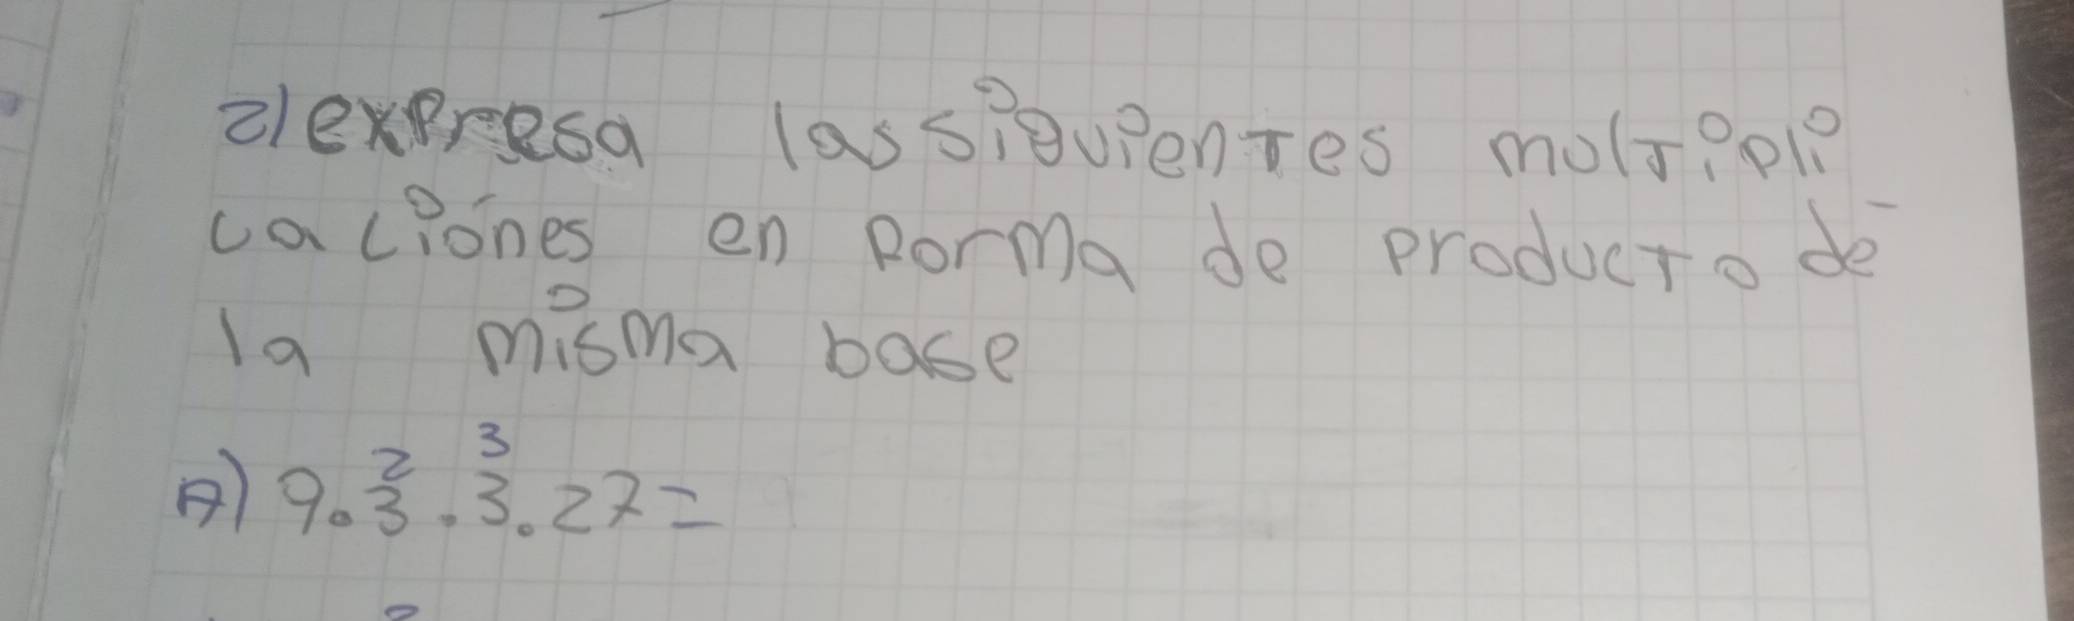 2) expresa las siguientes moltipli
caciones en Forma de producto de
la misma base
A) 9.3².3³.27=